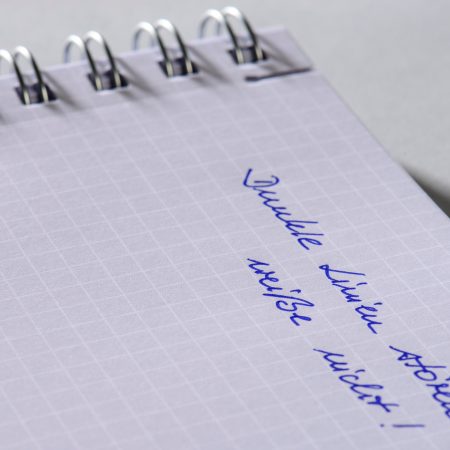 Dunkle Linien stören
weiße nicht!